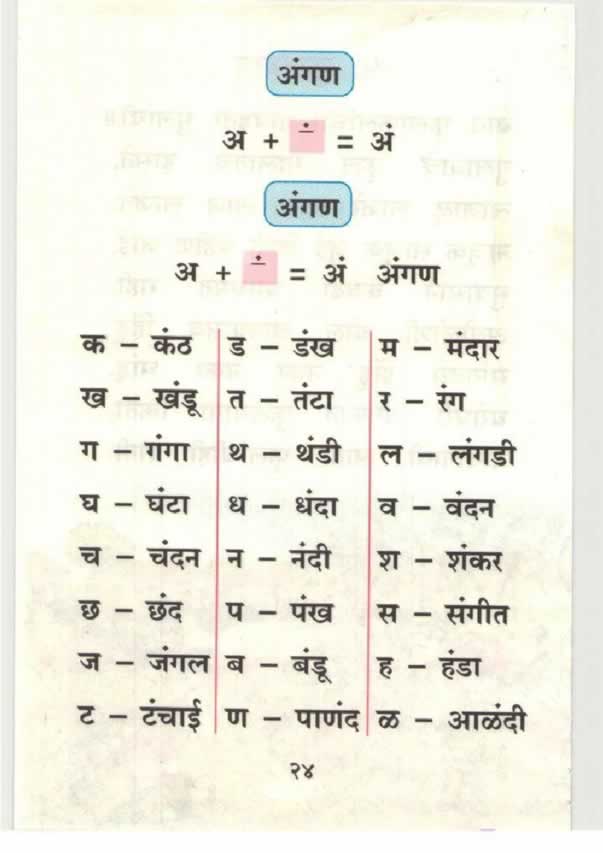 अंगण
अ + ं = अं
अंगण
अ + ं = अं अंगण
क – कंठ ड – डंख म – मंदार
ख – खंडू त – तंटा र – रंग
ग – गंगा थ – थंडी ल – लंगडी
घ – घंटा ध – धंदा व – वंदन
च – चंदन न – नंदी श – शंकर
छ – छंद प – पंख स – संगीत
ज – जंगल ब – बंडू ह – हंडा
ट – टंचाई ण – पाणंद ळ – आळंदी
२४